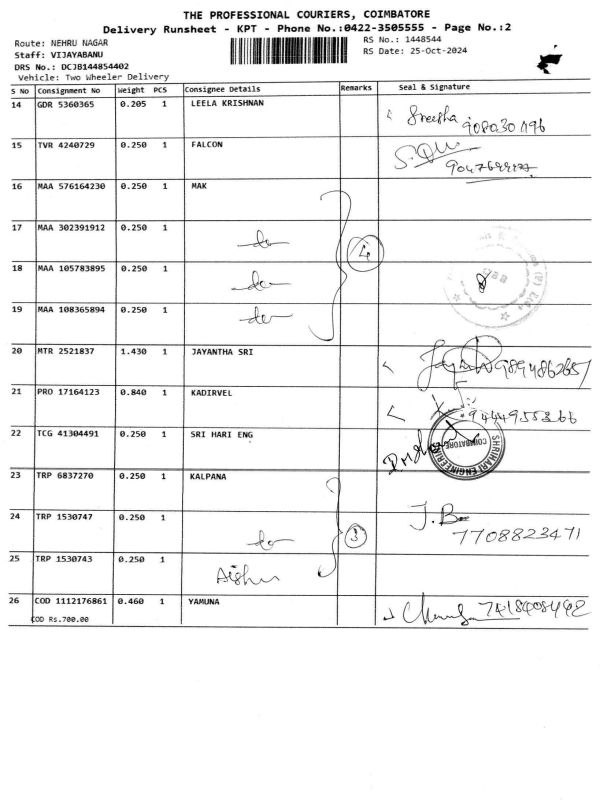 THE PROFESSIONAL COURIERS, COIMBATORE
Delivery Runsheet - KPT - Phone No.:0422-3505555 - Page No.:2
Route: NEHRU NAGAR
RS No.: 1448544
Staff: VIJAYABANU
RS Date: 25-Oct-2024
DRS No.: DCJB144854402
Vehicle: Two Wheeler Delivery
S No Consignment No Weight PCS Consignee Details Remarks Seal & Signature
14 GDR 5360365 0.205 1 LEELA KRISHNAN Sreesha
15 TVR 4240729 0.250 1 FALCON
16 MAA 576164230 0.250 1 MAK
17 MAA 302391912 0.250 1 do 4
18 MAA 105783895 0.250 1 do
19 MAA 108365894 0.250 1 do
20 MTR 2521837 1.430 1 JAYANTHA SRI
21 PRO 17164123 0.840 1 KADIRVEL
22 TCG 41304491 0.250 1 SRI HARI ENG SHRIHARI ENGINEERING COIMBATORE
23 TRP 6837270 0.250 1 KALPANA
24 TRP 1530747 0.250 1 do 3 7708823471
25 TRP 1530743 0.250 1 Aishu
26 COD 1112176861 0.460 1 YAMUNA 7418408442
COD Rs.700.00